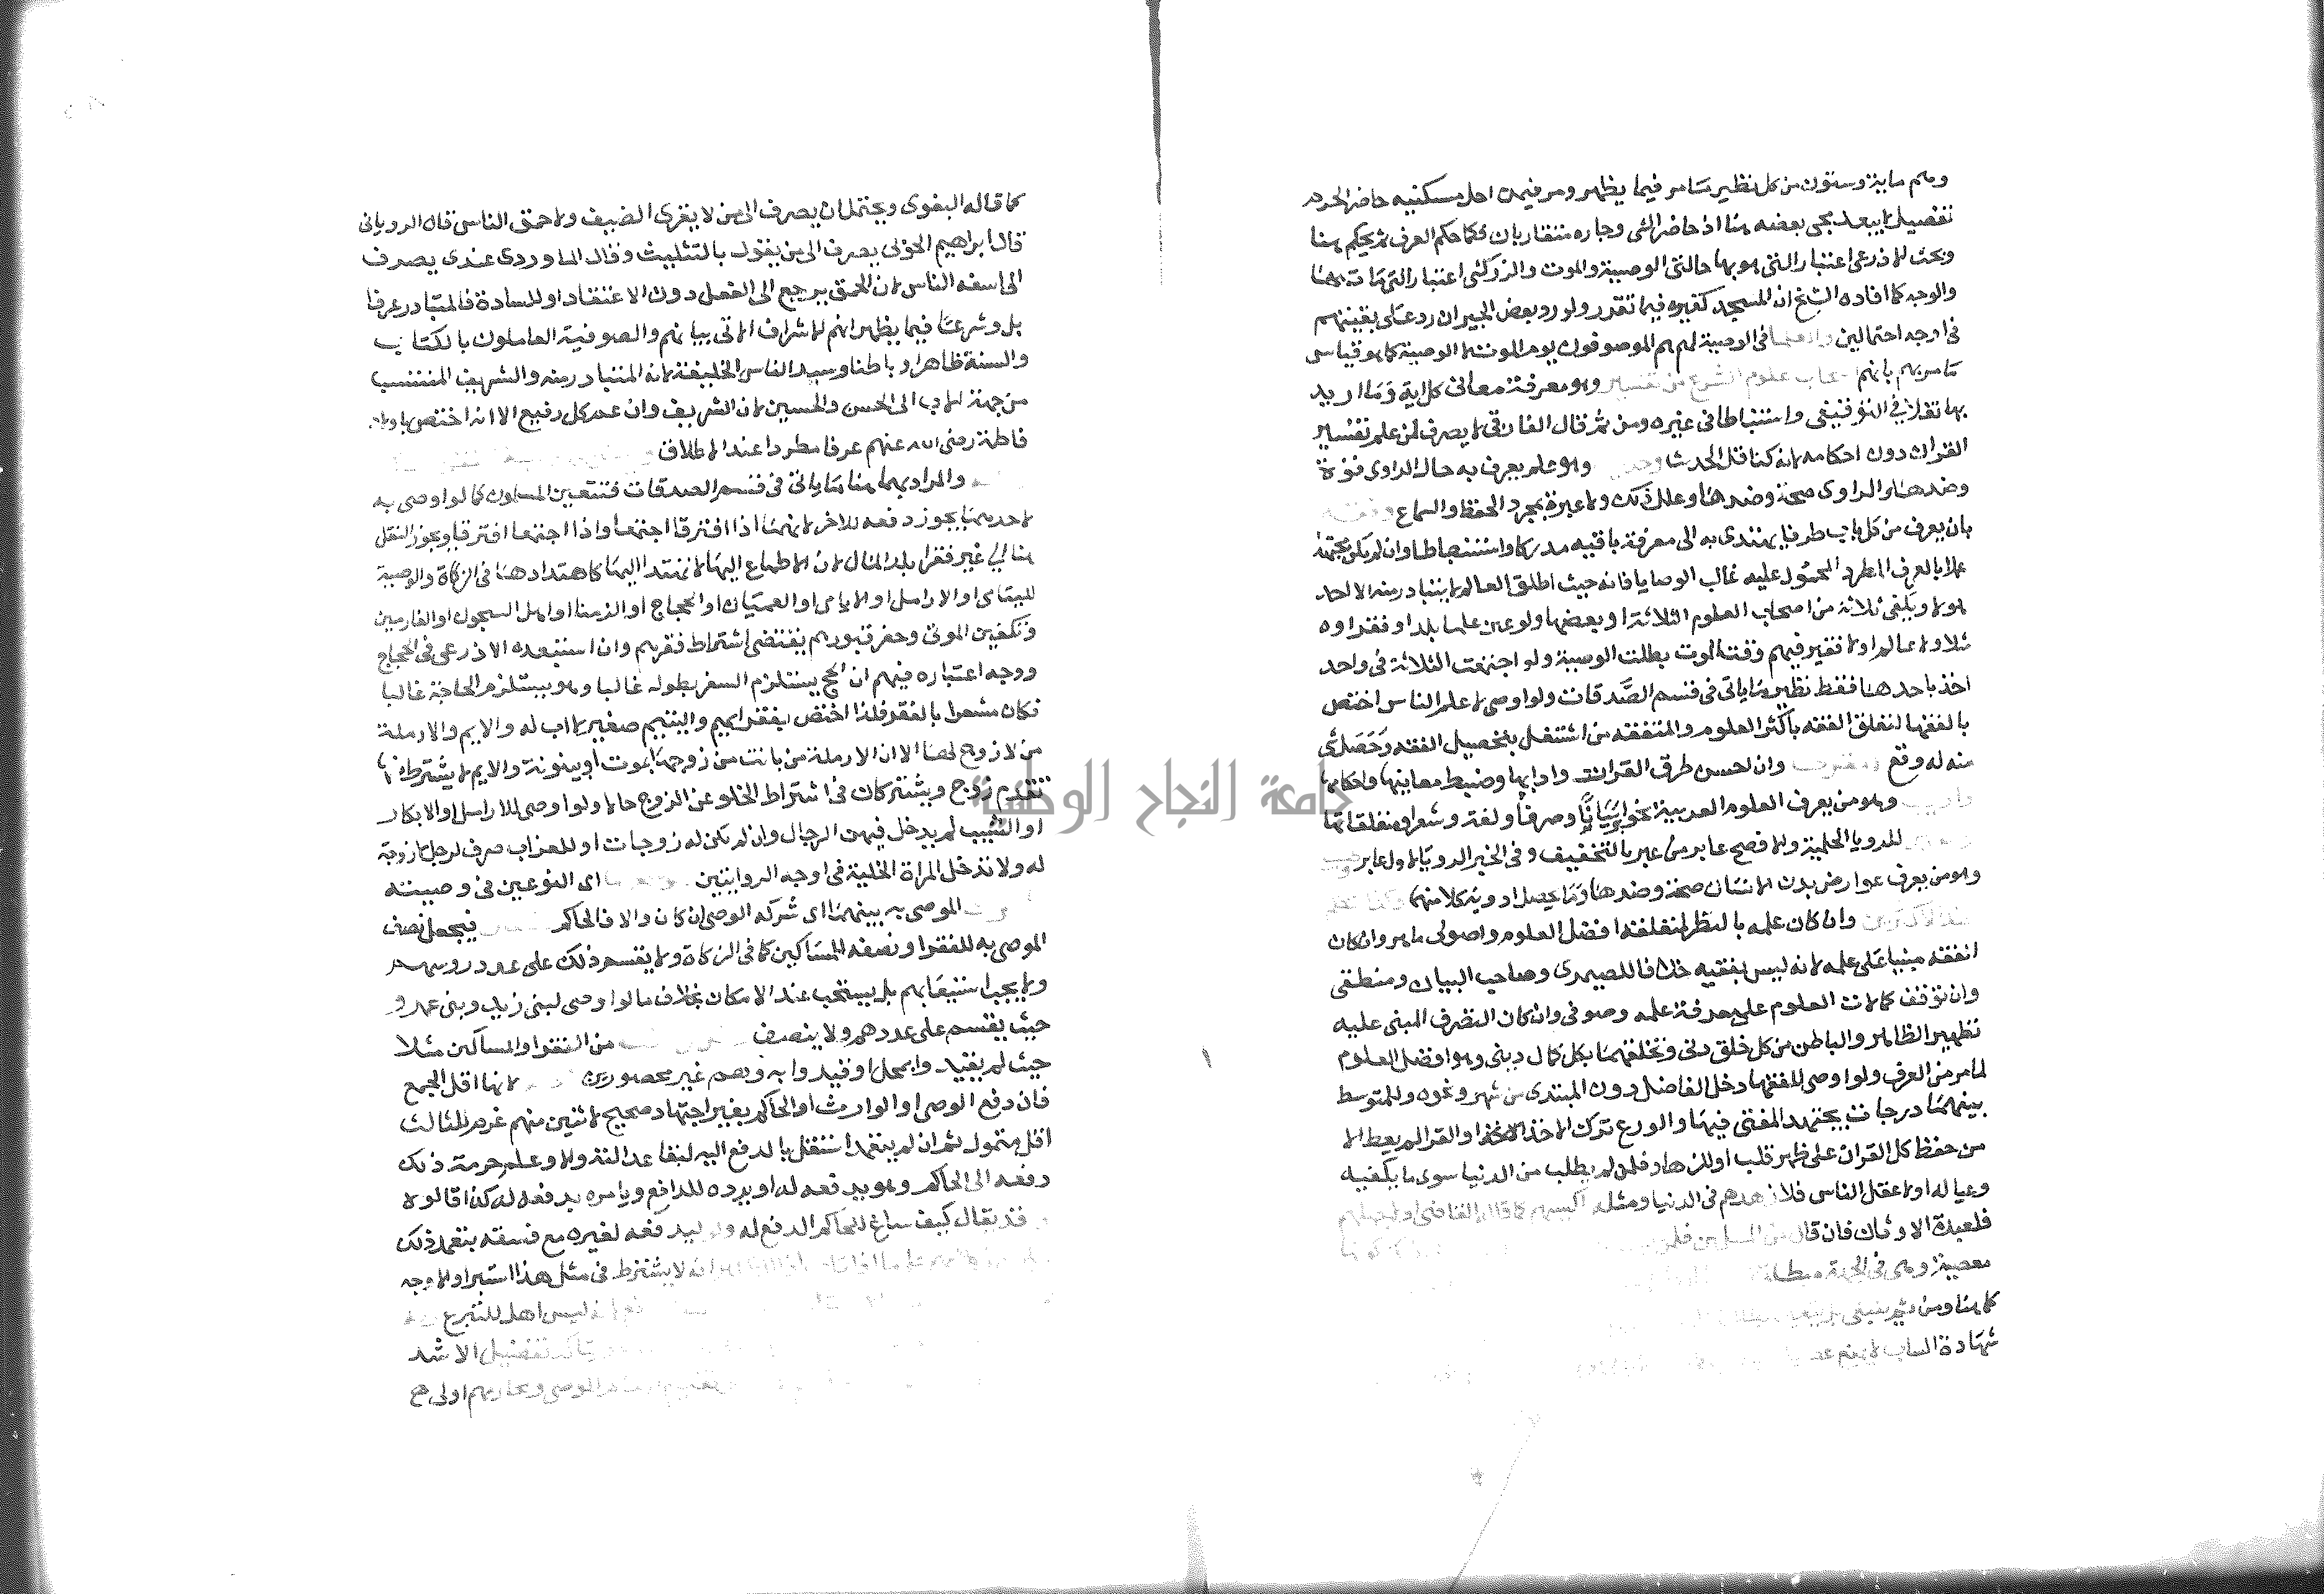 ومم ماية وستون من كل نظير ما مر فيما يظهر ومر فيمن احد مسكنيه حاضر الحرم
تفصيل لا يبعد مجى بعضه هنا اذ حاضر الشى وجاره متقاربان فكما حكم العرف ثم يحكم هنا
وبحث الاذرعى اعتبار التى هو بها حالتى الوصية والموت والزركشى اعتبار التى مات بها
والوجه كما افاده الشيخ ان المسجد كغيره فيما تقرر ولو رد بعض الجيران رد على بقيتهم
فى اوجه احتمالين والعلما فى الوصية لهم هم الموصوفون يوم الموت لا الوصية كما هو قياس
ما مر بهم بانهم اصحاب علوم الشرع من تفسير وهو معرفة معانى كل اية وما اريد
بها نقلا فى التوقيفى واستنباطا فى غيره ومن ثم قال الفارقى لا يصرف لمن علم تفسير
القران دون احكامه لانه كناقل الحديث وهو علم يعرف به حال الراوى قوة
وضدها والمروى صحة وضدها وعلل ذلك ولا عبرة بمجرد الحفظ والسماع
بان يعرف من كل باب طرفا يهتدى به الى معرفة باقيه مدركا واستنباطا وان لم يكن مجتهدا
عملا بالعرف المطرد المحمول عليه غالب الوصايا فانه حيث اطلق العالم لا يتبادر منه الا احد
هولا ويكفى ثلاثة من اصحاب العلوم الثلاثة او بعضها ولو عين علما بلد او فقراوه
مثلا ولا عالم او لا فقير فيهم وقت الموت بطلت الوصية ولو اجتمعت الثلاثة فى واحد
اخذ باحدها فقط نظير ما ياتى فى قسم الصدقات ولو اوصى لاعلم الناس اختص
بالفقها لتعلق الفقه باكثر العلوم والمتفقه من اشتغل بتحصيل الفقه وحصل شى
منه له وقع وان احسن طرق القرات واداها وضبط معانيها واحكامها
وهو من يعرف العلوم العربية نحوا وبيانا وصرفا ولغة وشعرا ومتعلقاتها
للرويا الحلمية والافصح عابر من عبر بالتخفيف وفى الخبر الرويا لاول عابر
وهو من يعرف عوارض بدن الانسان صحة وضدها وما يحصل او ويه كلا منهما
وان كان علمه بالنظر لمتعلقه افضل العلوم واصولى ماهر وان كان
الفقه مبنيا على علمه لانه ليس بفقيه خلافا للصيمرى وصاحب البيان ومنطقى
وان توقف كمالات العلوم على معرفة علمه وصوفى وان كان التصرف المبنى عليه
تطهير الظاهر والباطن من كل خلق دنى وتخلقهما بكل كمال دينى وهو افضل العلوم
لما مر من العرف ولو اوصى للفقها دخل الفاضل دون المبتدى من شهر ونحوه وللمتوسط
بينهما درجات يجتهد المفتى فيها والورع ترك الاخذ او القرا لم يعط الا
من حفظ كل القران على ظهر قلب او للزهاد فلمن لم يطلب من الدنيا سوى ما يكفيه
وعياله او لاعقل الناس فلازهدهم فى الدنيا ومثله اكيسهم كما قال القاضى
فلعبدة الاوثان فان قال من المسلمين فلمن
معصية وهى فى الجهة مبطلة
كما هنا ومن ثم ينبغى
شهادة الساب لا يمنع
كما قاله البغوى ويحتمل ان يصرف الى من لا يقرى الضيف ولاحمق الناس قال الرويانى
قال ابراهيم الخولى يصرف الى من يقول بالتثليث وقال الماوردى عندى يصرف
الى اسفه الناس لان الحمق يرجع الى الفعل دون الاعتقاد او للسادة فالمتبادر عرفا
بل وشرعا فيما يظهر انهم الاشراف الاتى بيانهم والصوفية العاملون بالكتاب
والسنة ظاهرا وباطنا وسيد الناس الخليفة لانه المتبادر منه والشريف المنتسب
من جهة الاب الى الحسن والحسين لان الشريف وان عم كل رفيع الا انه اختص باولاد
فاطمة رضى الله عنهم عرفا مطردا عند الاطلاق
والمراد بهما هنا ما ياتى فى قسم الصدقات فتتعين المسلمون كما لو اوصى به
لاحدهما يجوز دفعه للاخر لانهما اذا افترقا اجتمعا واذا اجتمعا افترقا ويجوز النقل
هنا الى غير فقرا بلد المال لان الاطماع اليها لا تمتد اليها كامتدادها فى الزكاة والوصية
لليتامى او الارامل او الايامى او العميان او الحجاج او الزمنا او اهل السجون او الغارمين
وتكفين الموتى وحفر قبورهم يقتضى اشتراط فقرهم وان استبعده الاذرعى فى الحجاج
ووجه اعتباره فيهم ان الحج يستلزم السفر بطوله غالبا وهو يستلزم الحاجة غالبا
فكان مشعرا بالفقر فلذا اختص بفقرايهم واليتيم صغير لا اب له والايم والارملة
من لا زوج لها الا ان الارملة من بانت من زوجها بموت او بينونة والايم لا يشترط فيها
تقدم زوج ويشتركان فى اشتراط الخلو عن الزوج حالا ولو اوصى للارامل او الابكار
او الثيب لم يدخل فيهن الرجال وان لم يكن له زوجات او للعزاب صرف لرجل لا زوجة
له ولا تدخل المراة الخلية فى اوجه الروايتين اى النوعين فى وصيته
الموصى به بينهما اى شركه الوصى ان كان والا فالحاكم فيجعل نصف
الموصى به للفقرا ونصفه للمساكين كما فى الزكاة ولا يقسم ذلك على عدد روسهم
ولا يجب استيعابهم بل يستحب عند الامكان بخلاف ما لو اوصى لبنى زيد وبنى عمرو
حيث يقسم على عددهم ولا ينصف من الفقرا والمساكين مثلا
حيث لم يقيد وا بمحل او قيدوا به وهم غير محصورين لانها اقل الجمع
فان دفع الوصى او الوارث او الحاكم بغير اجتهاد صحيح لاثنين منهم غرم للثالث
اقل متمول ثم ان لم يتعمد استقل بالدفع اليه لبقا عدالته والا وعلم حرمة ذلك
دفعه الى الحاكم وهو يدفعه له او يرده للدافع ويامره بدفعه له كذا قالوه
وقد يقال كيف ساغ للحاكم الدفع له وليد فعه لغيره مع فسقه بتعمد ذلك
انه لا يشترط فى مثل هذا استبرا والاوجه
ليس اهلا للتبرع
تفضيل الاشد
الموصى ومحارمهم اولى
جامعة النجاح الوطنية